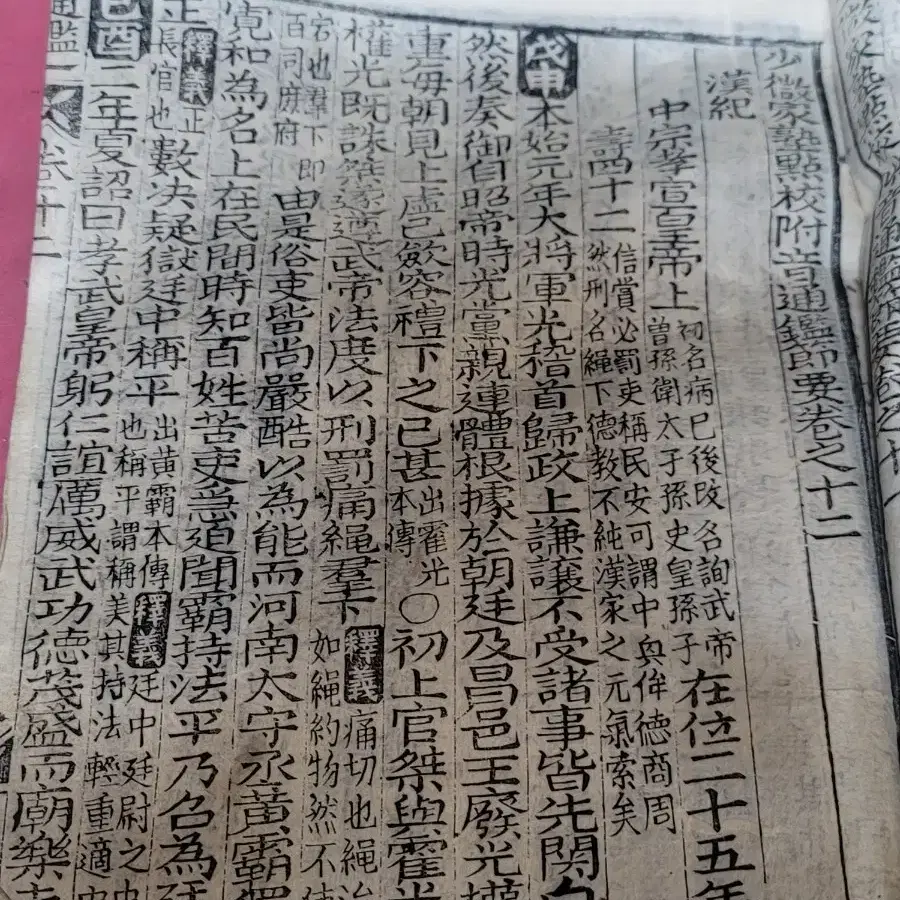 少微家塾點校附音通鑑節要卷之十二
漢紀
中宗孝宣皇帝上
初名病已後改名詢武帝
曾孫衛太子孫史皇孫子
在位二十五年
壽四十二
信賞必罰吏稱民安可謂中興侔德商周
然刑名繩下德教不純漢家之元氣索矣
戊申
本始元年大將軍光稽首歸政上謙讓不受諸事皆先関白
然後奏御自昭帝時光黨親連體根據於朝廷及昌邑王廢光
重每朝見上虛已斂容禮下之已甚
出霍光
本傳
○初上官桀與霍光
權光既誅桀遂遵武帝法度以刑罰痛繩羣下
釋義
痛切也繩治
如繩約物然不使
宕也羣下即
百司庶府
由是俗吏皆尚嚴酷以為能而河南太守丞黃霸
寬和為名上在民間時知百姓苦吏急迫聞霸持法平乃召為廷
正
釋義
正
長官也
數决疑獄廷中稱平
出黃霸本傳
釋義
廷中廷尉之中
也稱平謂稱美其持法輕重適中
己酉
二年夏詔曰孝武皇帝躬仁誼厲威武功德茂盛而廟樂
通鑑二
卷十二